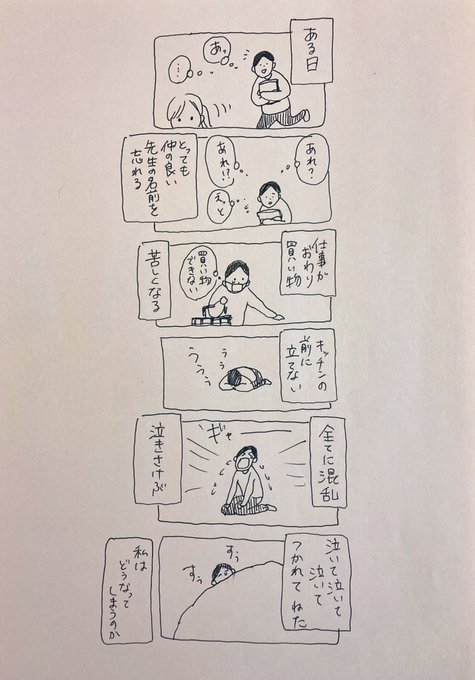 ある日
あっ
…
とっても
仲の良い
先生の名前を
忘れる
あれ？
あれ!?
えっと
仕事が
おわり
買い物
買い物
できない
苦しくなる
キッチンの
前に
立てない
うぅ
うぅぅ
全てに混乱
ギャ
泣きさけぶ
泣いて泣いて
泣いて
つかれてねた
すぅ
すぅ
私は
どうなって
しまうのか